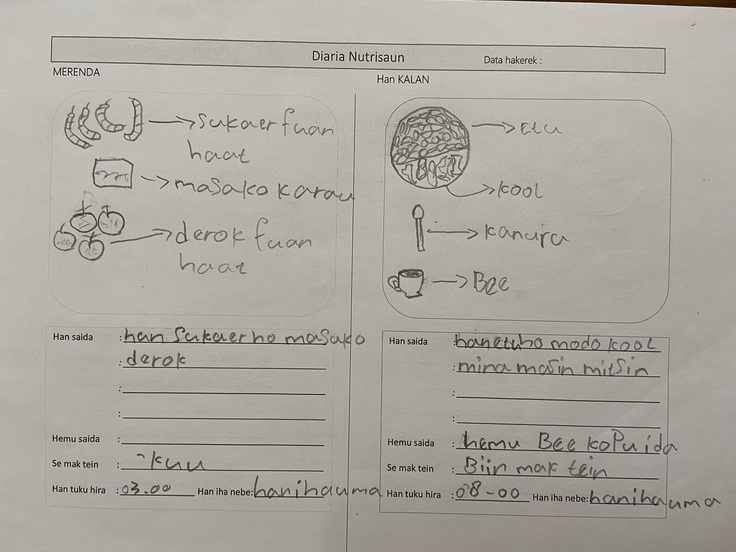 Diaria Nutrisaun
Data hakerek :
MERENDA
sukaer fuan
haat
masako karau
derok fuan
haat
Han saida : han sukaer ho masako
: derok
:
:
Hemu saida :
Se mak tein : kuu
Han tuku hira : 03.00 Han iha nebe: han iha uma
Han KALAN
Etu
kool
kanura
Bee
Han saida : han etu ho modo kool
: mina masin mitsin
:
:
Hemu saida : hemu Bee kopu ida
Se mak tein : Biin mak tein
Han tuku hira : 08-00 Han iha nebe: han iha uma